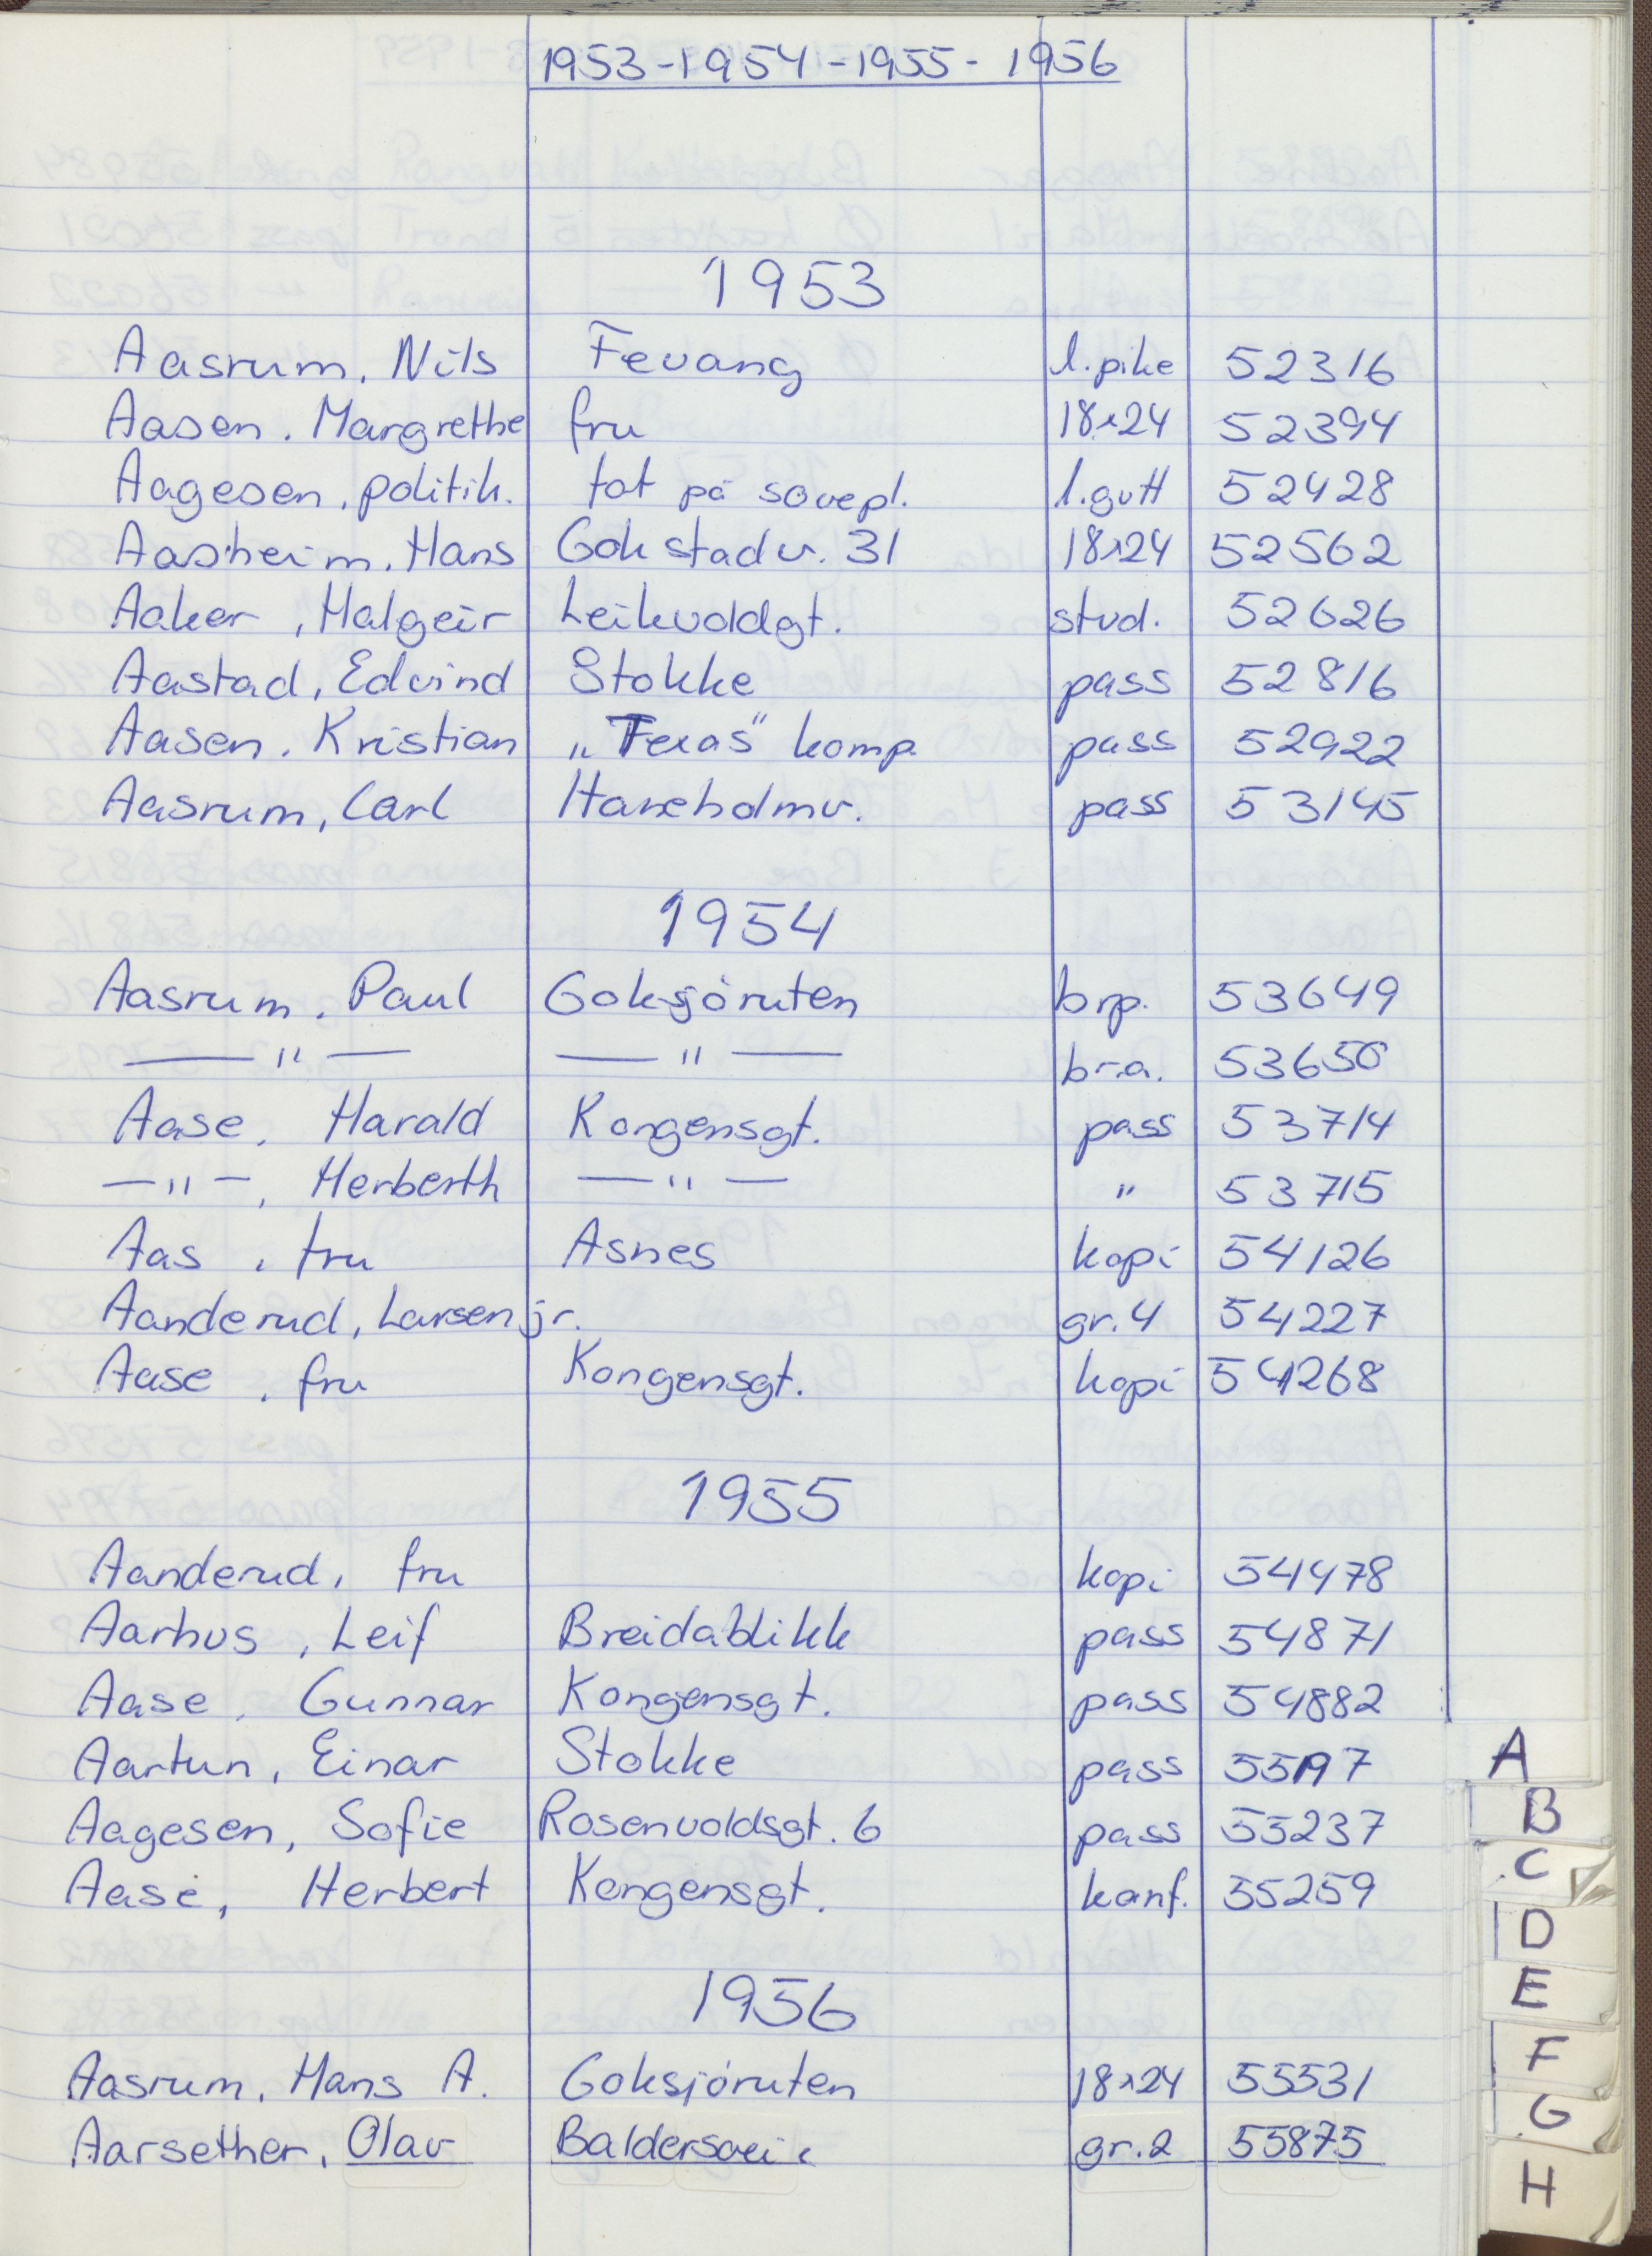 1953-1954-1955-1956
1953
Aasrum, Nils Fevang l.pike 52316
Aasen, Margrethe fru 18x24 52394
Aagesen, politik. tat på sovepl. l.gutt 52428
Aasheim, Hans Gokstadv. 31 18x24 52562
Aaker, Halgeir Leikvoldgt. stud. 52626
Aastad, Edvind Stokke pass 52816
Aasen, Kristian „Texas" komp. pass 52922
Aasrum, Carl Haneholmv. pass 53145
1954
Aasrum, Paul Goksjóruten brp. 53649
— " — — " — br.a. 53650
Aase, Harald Kongensgt. pass 53714
— " —, Herberth — " — " 53715
Aas, fru Asnes kopi 54126
Aanderud, Larsen jr. gr.4 54227
Aase, fru Kongensgt. kopi 54268
1955
Aanderud, fru kopi 54478
Aarhus, Leif Breidablikk pass 54871
Aase, Gunnar Kongensgt. pass 54882
Aartun, Einar Stokke pass 55197
Aagesen, Sofie Rosenvoldsgt. 6 pass 55237
Aase, Herbert Kongensgt. konf. 55259
1956
Aasrum, Hans A. Goksjóruten 18x24 55531
Aarsether, Olav Baldersvei gr.2 55875
A
B
C
D
E
F
G
H